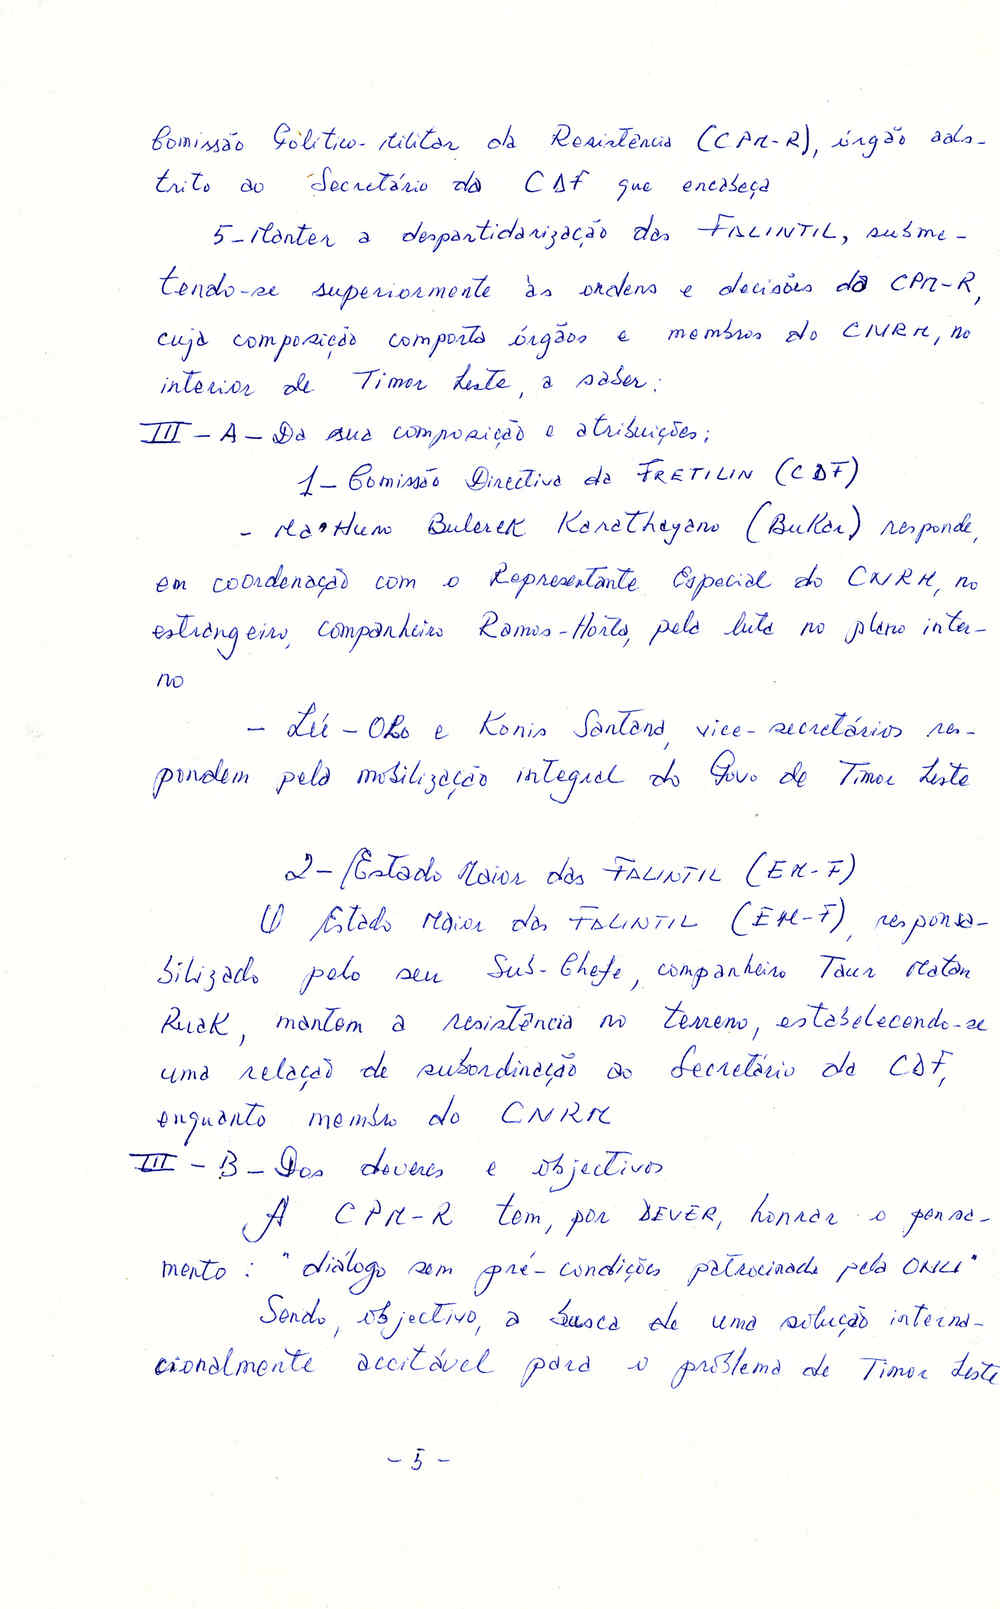 Comissão Político-Militar da Resistência (CPM-R), órgão ads-
trito ao Secretário da CDF que encabeça
5-Manter a despartidarização das FALINTIL, subme-
tendo-se superiormente às ordens e decisões da CPM-R,
cuja composição comporta órgãos e membros do CNRM, no
interior de Timor Leste, a saber:
III - A - Da sua composição e atribuições;
1- Comissão Directiva da FRETILIN (CDF)
- Ma'Huno Bulerek Karathayano (BuKar) responde,
em coordenação com o Representante Especial do CNRM, no
estrangeiro, companheiro Ramos-Horta, pela luta no plano inter-
no
- Lú-Olo e Konis Santana, vice-secretários res-
pondem pela mobilização integral do Povo de Timor Leste
2- Estado Maior das FALINTIL (EM-F)
O Estado Maior das FALINTIL (EM-F), responsa-
bilizado pelo seu Sub-Chefe, companheiro Taur Matan
Ruak, mantem a resistência no terreno, estabelecendo-se
uma relação de subordinação ao Secretário da CDF,
enquanto membro do CNRM
III - B - Dos deveres e objectivos
A CPM-R tem, por DEVER, honrar o pensa-
mento: "diálogo sem pré-condições patrocinado pela ONU"
Sendo, objectivo, a busca de uma solução interna-
cionalmente aceitável para o problema de Timor Leste
- 5 -